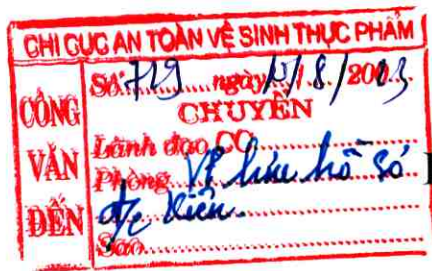 CHI CỤC AN TOÀN VỆ SINH THỰC PHẨM
CÔNG VĂN ĐẾN
Số: 719 ngày /8/2003
CHUYỂN
Lãnh đạo CC
Phòng VP lưu hồ sơ
Sao